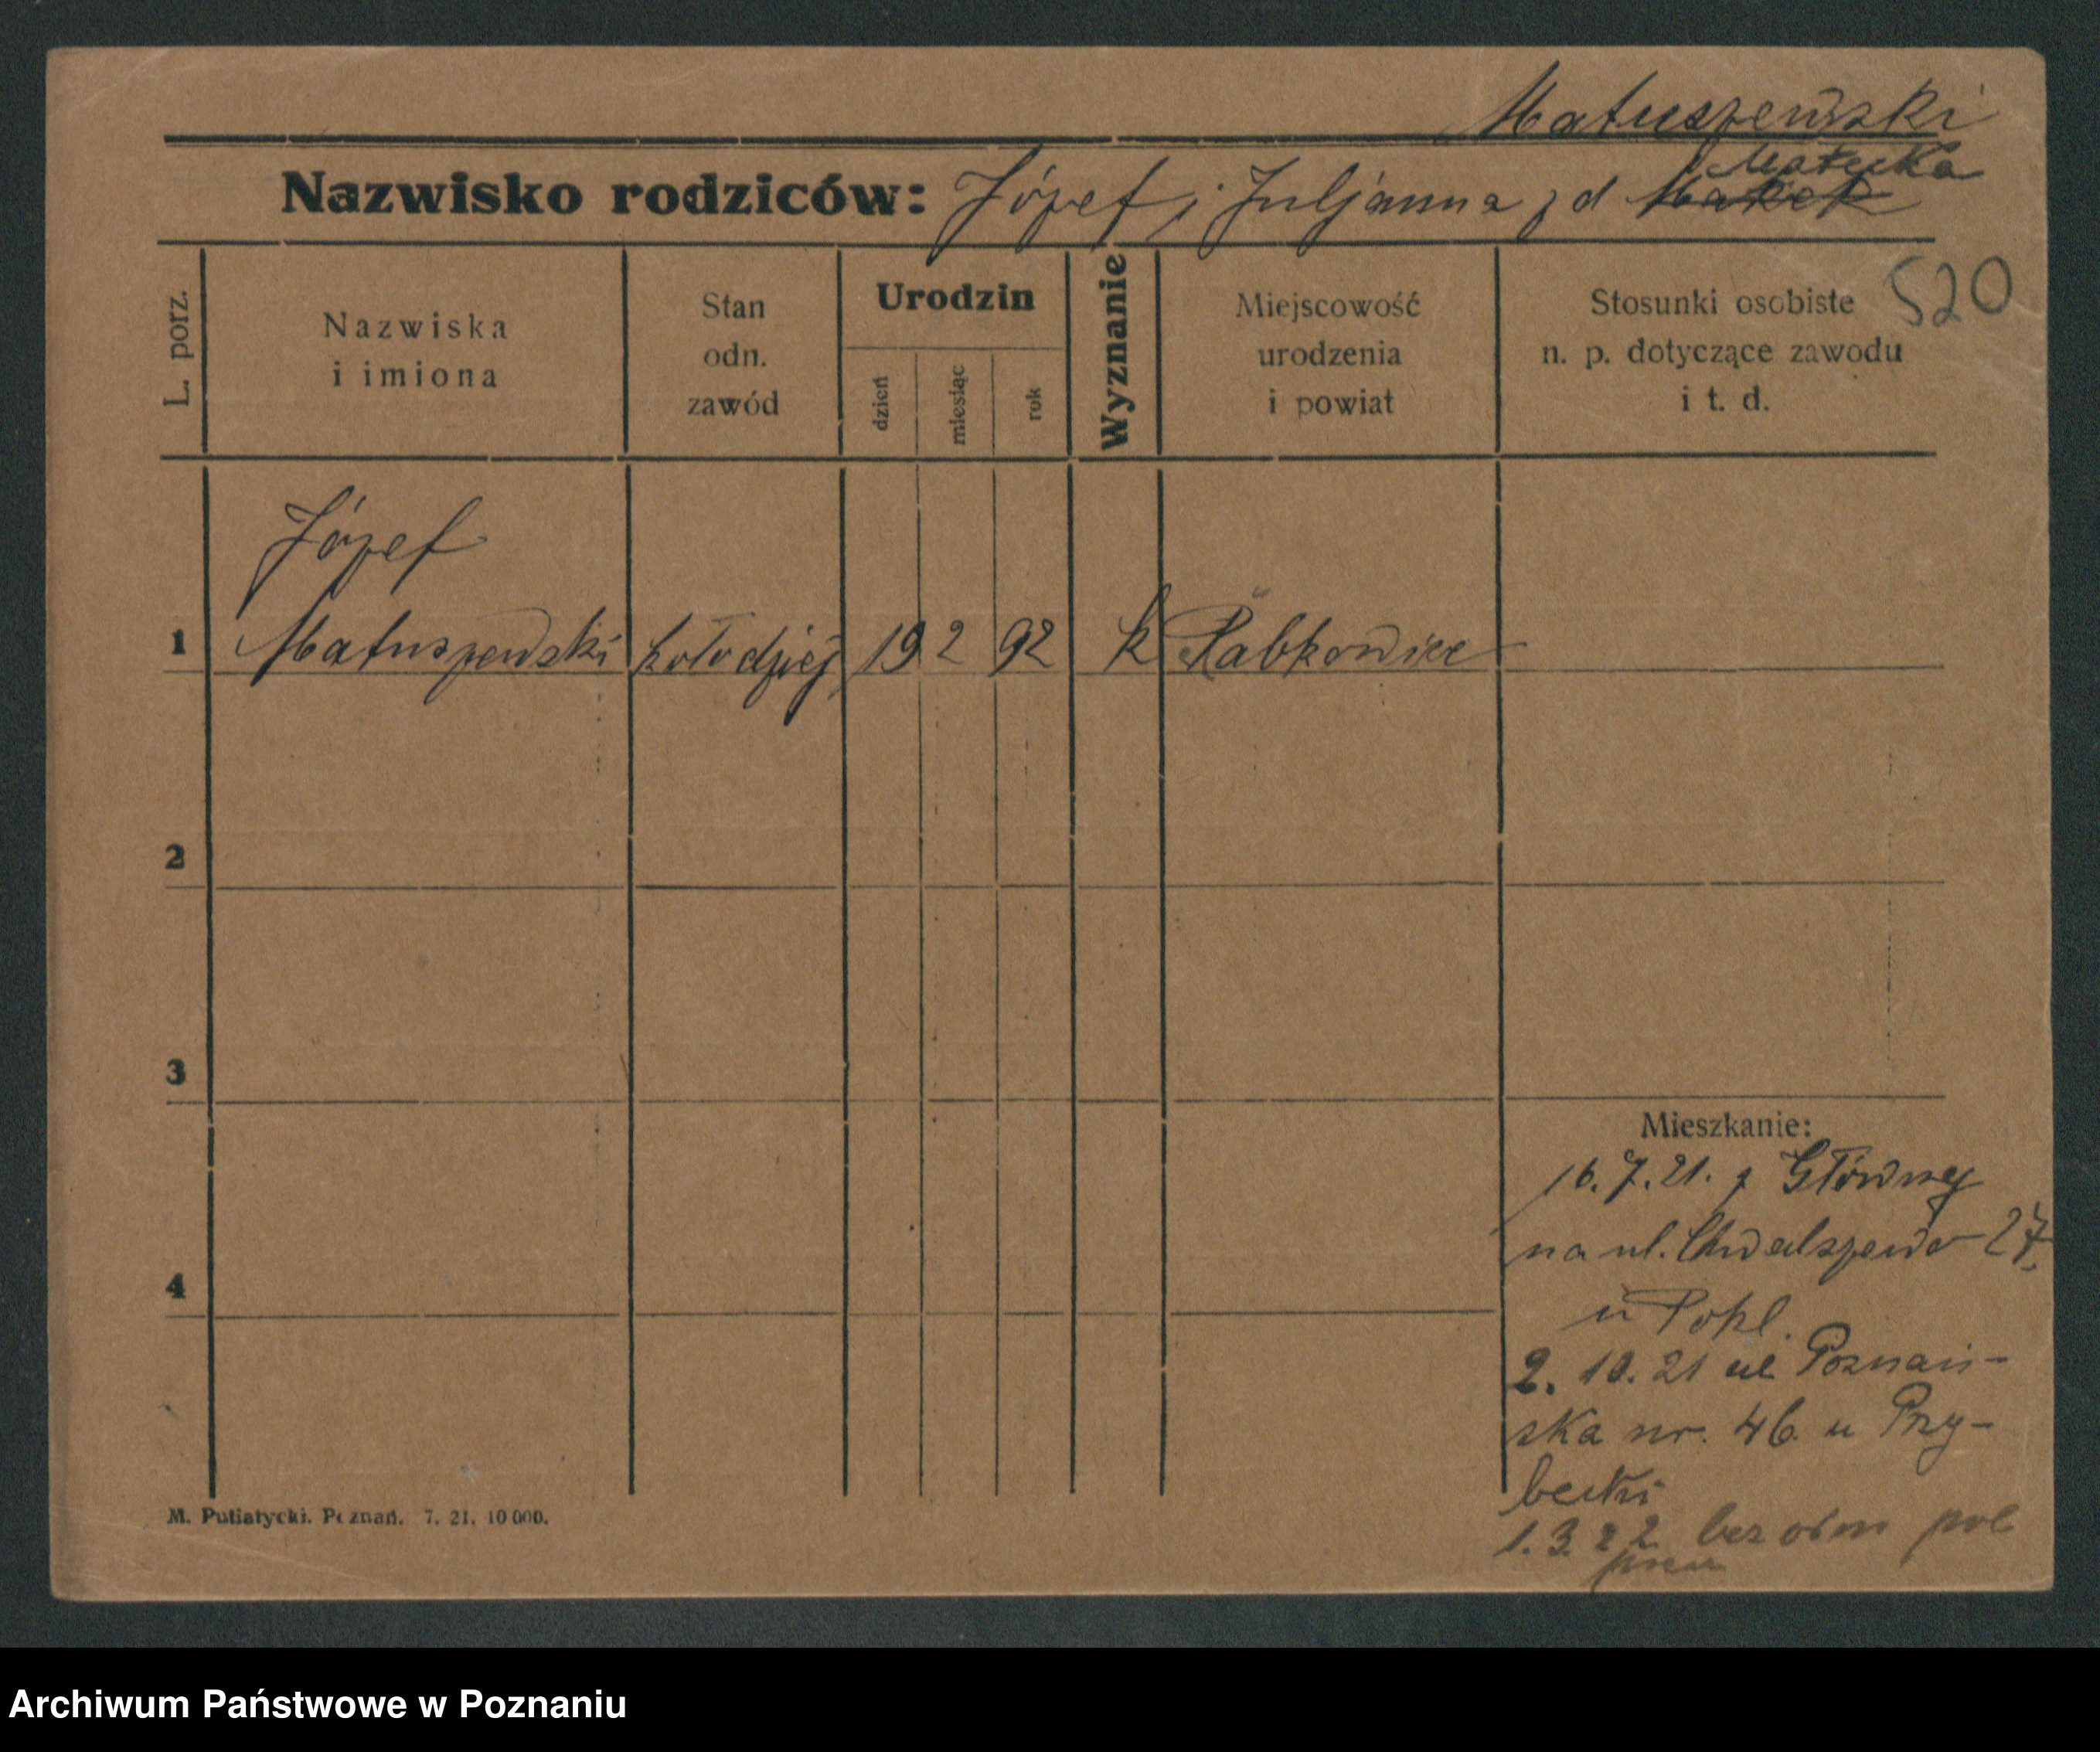 Matuszewski
Matecka
Nazwisko rodziców: Józef i Juljanna zd
520
L. porz.
Nazwiska
i imiona
Stan
odn.
zawód
Urodzin
dzień
miesiąc
rok
Wyznanie
Miejscowość
urodzenia
i powiat
Stosunki osobiste
n. p. dotyczące zawodu
i t. d.
Józef
1 Matuszewski kołodziej 19 2 92 k
2
3
4
Mieszkanie:
16.7.21. z Głównej
na ul. Chwaliszewo 27.
u
2. 10. 21 ul Poznań-
ska nr. 46. u Przy-
becki
1.3.22 bez pol
M. Putiatycki. Poznań. 7. 21. 10 000.
Archiwum Państwowe w Poznaniu